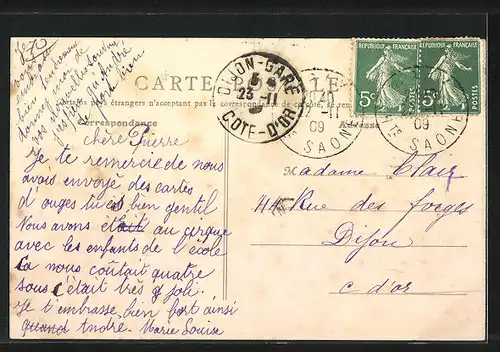 CARTE POSTALE
pays étrangers n'acceptant pas la correspondance
Correspondance
Adresse
RÉPUBLIQUE FRANÇAISE
5c
POSTES
RÉPUBLIQUE FRANÇAISE
5c
POSTES
DIJON-GARE
23-11
09
COTE-D'OR
09
SAONE
09
SAONE
chère Pierre
Je te remercie de nous
avois envoyé des cartes
d'ouges tu es bien gentil
Nous avons était au cirque
avec les enfants de l'école
Ca nous coutait quatre
sous c'était très joli.
Je t'embrasse bien fort ainsi
quand André. Marie Louise
Madame Clair
44 Rue des forges
Dijon
C d'or